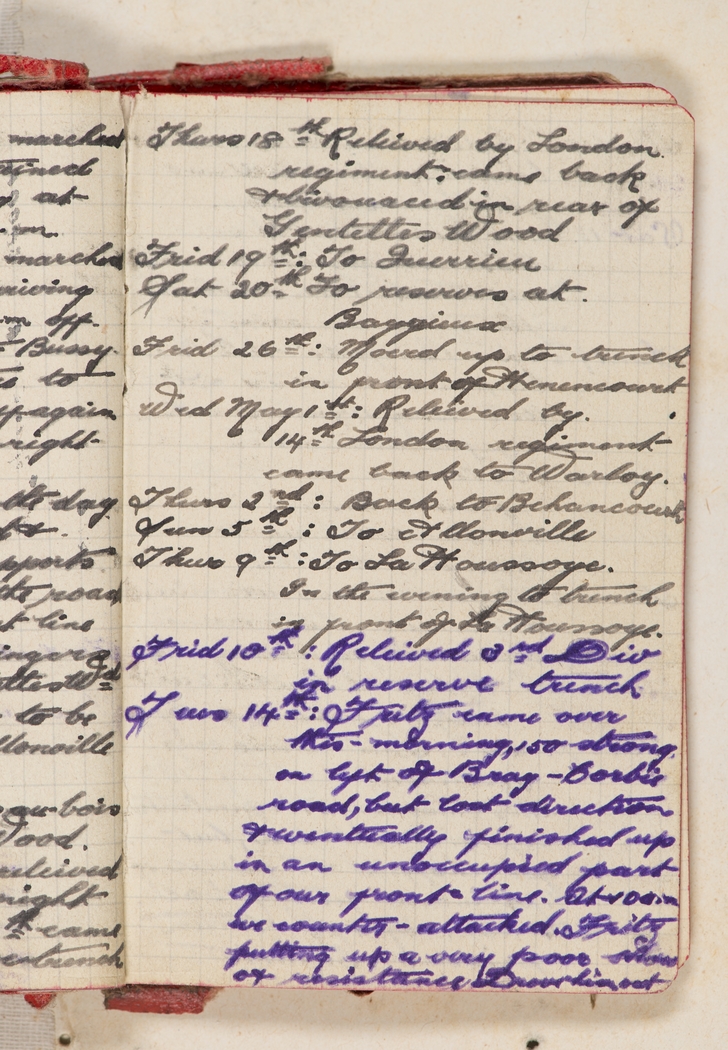 marched
ained
at
m.
marched
riving
m off.
Bussy.
to
y again
right
the day
pports
the road
t line
ingers
to be
llonville
au-bois
Wood.
releived
night
th came
trench
Thurs 18th Releived by London
regiment: came back
& bivouaced in rear of
Gentettes Wood
Frid 19th: To Querrieu
Sat 20th To reserves at.
Baggieux
Frid 26th: Moved up to trench
in front of Henencourt
Wed May 1st: Releived by.
14th London regiment
came back to Warloy.
Thurs 2nd: Back to Behancourt
Sun 5th: To Allonville
Thur 9th: To La Houssoye.
In the evening to trench
in front of La Houssoye.
Frid 10th: Releived 3rd Div
in reserve trench
Tues 14th: Fritz came over
this-morning, 150 strong
on left of Bray-Corbie
road, but lost direction
& eventually finished up
in an unoccupied part
of our front-line. At
we counter-attacked. Fritz
putting up a very poor show
of resistance. Drove him out